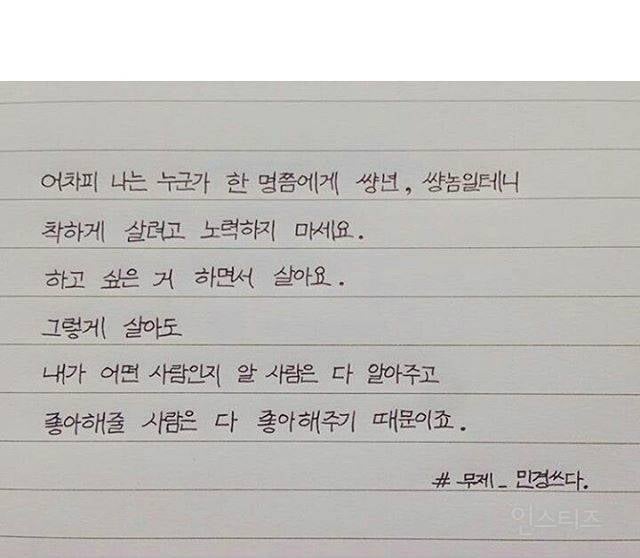 어차피 나는 누군가 한 명쯤에게 썅년, 썅놈일테니
착하게 살려고 노력하지 마세요.
하고 싶은 거 하면서 살아요.
그렇게 살아도
내가 어떤 사람인지 알 사람은 다 알아주고
좋아해줄 사람은 다 좋아해주기 때문이죠.
# 무제_ 민경쓰다.
인스티즈